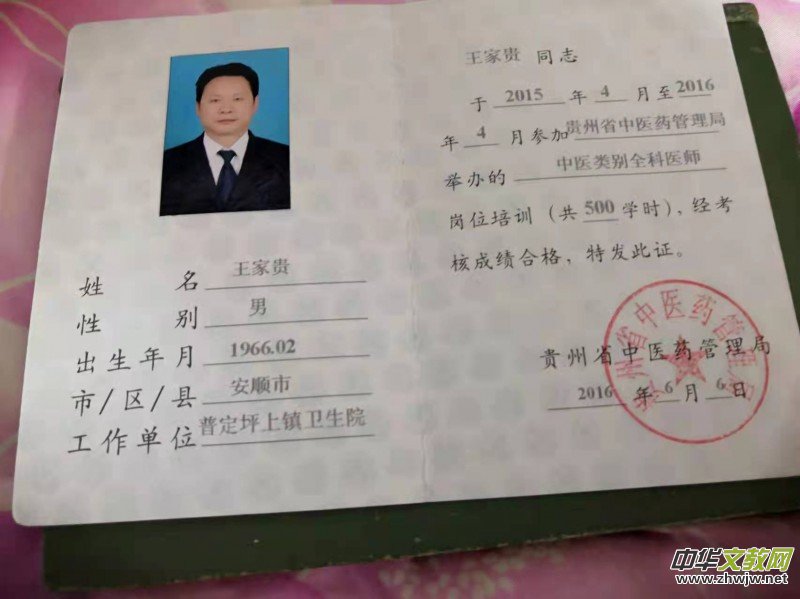 姓名 王家贵
性别 男
出生年月 1966.02
市/区/县 安顺市
工作单位 普定坪上镇卫生院
王家贵 同志
于 2015 年 4 月至 2016
年 4 月参加贵州省中医药管理局
举办的 中医类别全科医师
岗位培训（共 500 学时），经考
核成绩合格，特发此证。
贵州省中医药管理局
2016 年 6 月 6 日
贵州省中医药管理局
中华文教网
www.zhwjw.net